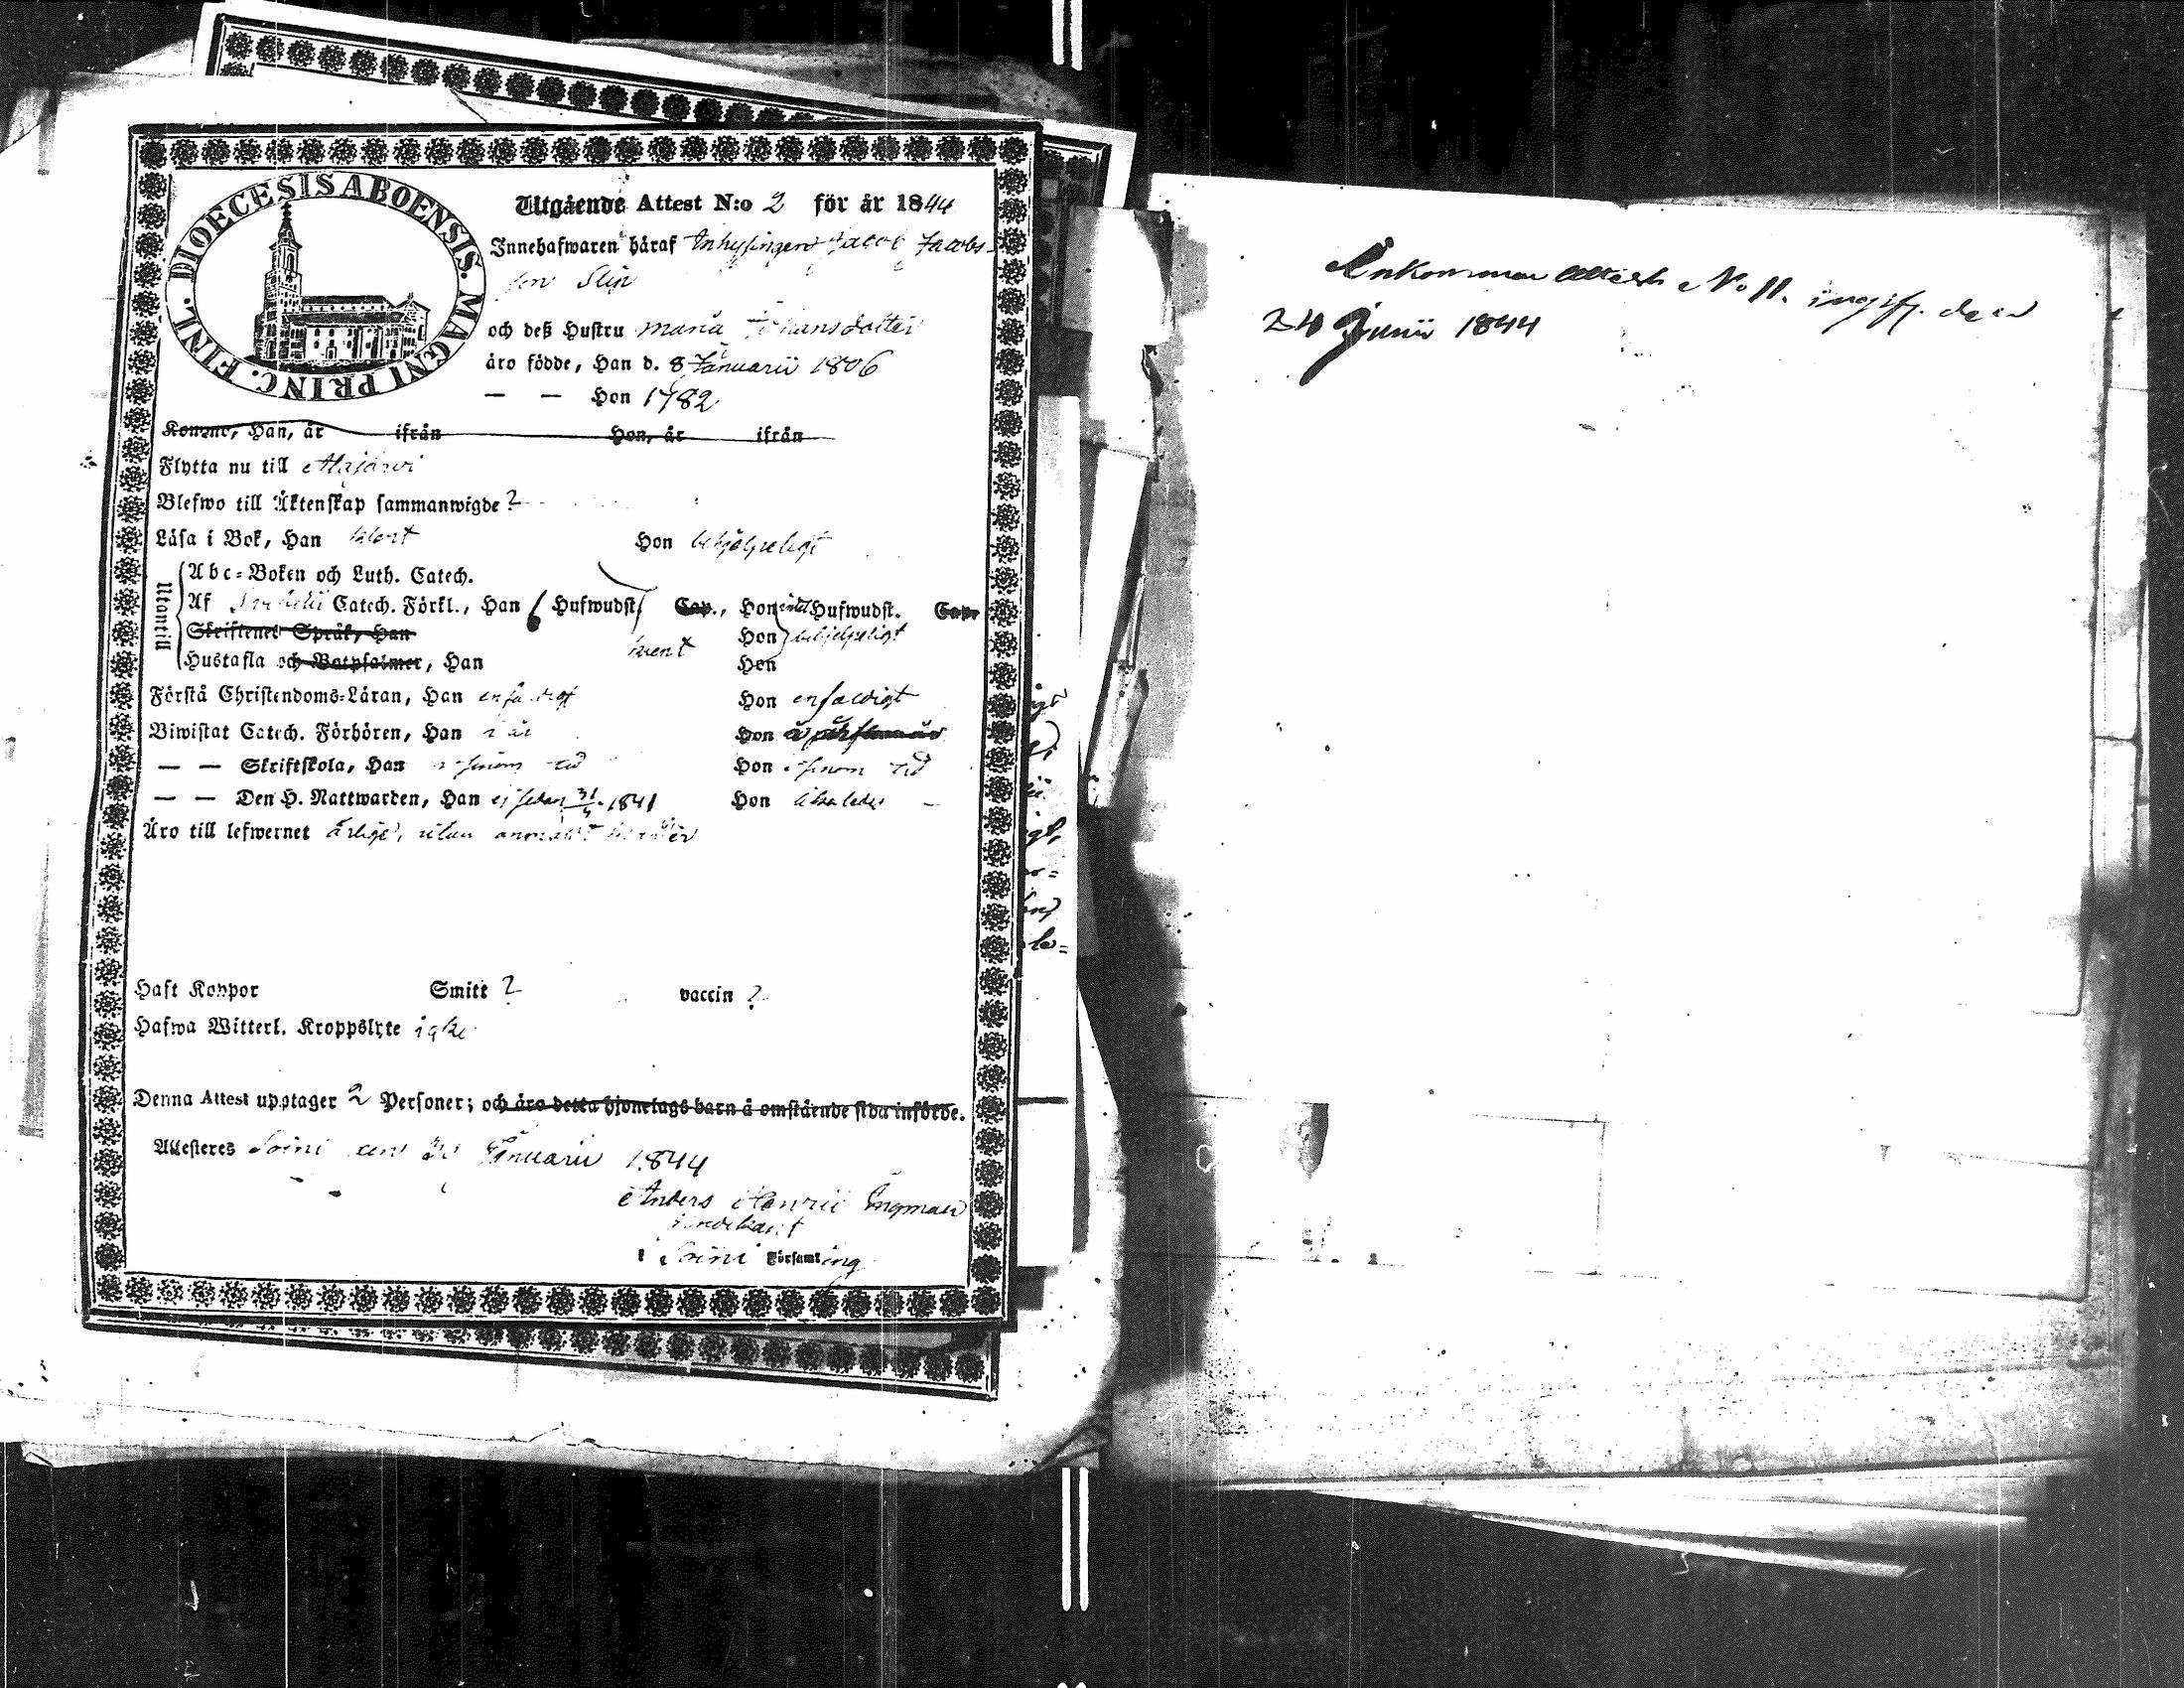 DIOECESIS ABOENSIS. MAGNI PRINC. FINL.
Utgående Attest N:o 2 för år 1844
Innehafwaren håraf Inhysingen Jacob Jacobs-
son Slip
och deß Hustru Maria Johansdotter
äro födde, Han d. 8 Januarii 1806
— — Hon 1782
Komne, Han, år ifrån Hon, år ifrån
Flytta nu till Alajärvi
Blefwo till Äktenskap sammanwigde ?
Läsa i Bok, Han klent Hon behjelpeligt
Utantill
Abc-Boken och Luth. Catech.
Af Catech. Förkl., Han 6 Hufwudst. Cap., Hon Hufwudst. Cap.
Skriftenes Språk, Han Hon behjelpeligt
klent
Hustafla och Botpsalmer, Han Hon
Förstå Christendoms-Läran, Han enfaldigt Hon enfaldigt
Biwistat Catech. Förhören, Han i år Hon
— — Skriftskola, Han i sinom tid Hon i sinom tid
— — Den H. Nattwarden, Han ej sedan 1841 Hon likaledes
Äro till lefwernet ärlige, utan anmärkt
Haft Koppor Smitt ? vaccin ?
Hafwa Witterl. Kroppslyte icke
Denna Attest upptager 2 Personer; och äro detta hjonelags barn å omstående sida införde.
Attesteres Soini den Januarii 1844
Anders Henric Ingman
Predikant
i Soini Församling
Ankommen Attest No 11. ingif. den
24 Junii 1844